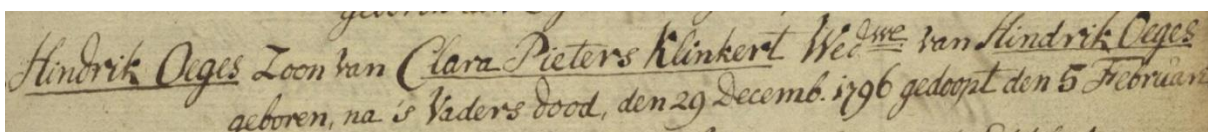 Hindrik Oeges Zoon van Clara Pieters Klinkert Wedwe. van Hindrik Oeges
geboren, na 's Vaders dood, den 29 Decemb. 1796 gedoopt den 5 Februari